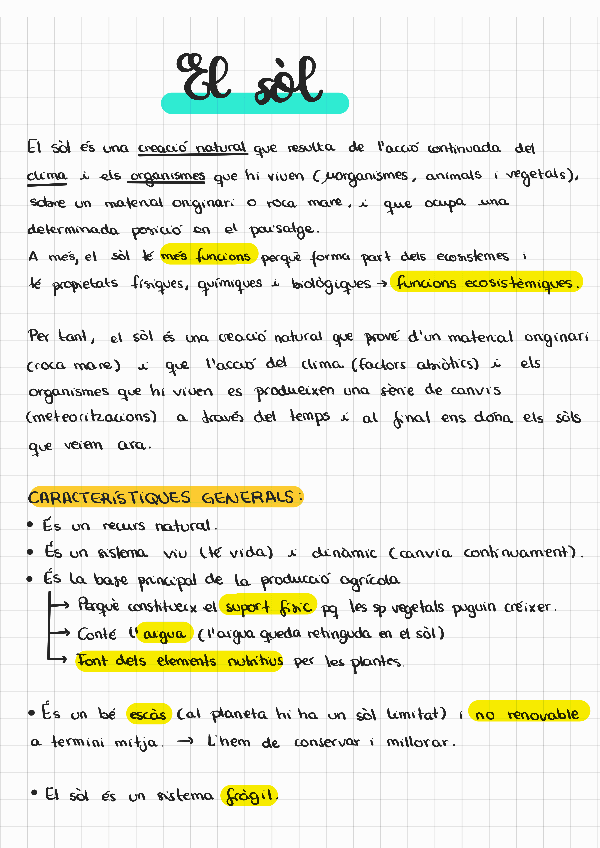 El sòl
El sòl és una creació natural que resulta de l'acció continuada del
clima i els organismes que hi viuen (μorganismes, animals i vegetals),
sobre un material originari o roca mare, i que ocupa una
determinada posició en el paisatge.
A més, el sòl té més funcions perquè forma part dels ecosistemes i
té propietats físiques, químiques i biològiques → funcions ecosistèmiques.
Per tant, el sòl és una creació natural que prové d'un material originari
(roca mare) i que l'acció del clima (factors abiòtics) i els
organismes que hi viuen es produeixen una sèrie de canvis
(meteoritzacions) a través del temps i al final ens dona els sòls
que veiem ara.
CARACTERÍSTIQUES GENERALS:
• És un recurs natural.
• És un sistema viu (té vida) i dinàmic (canvia contínuament).
• És la base principal de la producció agrícola
→ Perquè constitueix el suport físic pq les sp vegetals puguin créixer.
→ Conté l'aigua (l'aigua queda retinguda en el sòl)
→ Font dels elements nutritius per les plantes.
• És un bé escàs (al planeta hi ha un sòl limitat) i no renovable
a termini mitja. → L'hem de conservar i millorar.
• El sòl és un sistema fràgil.